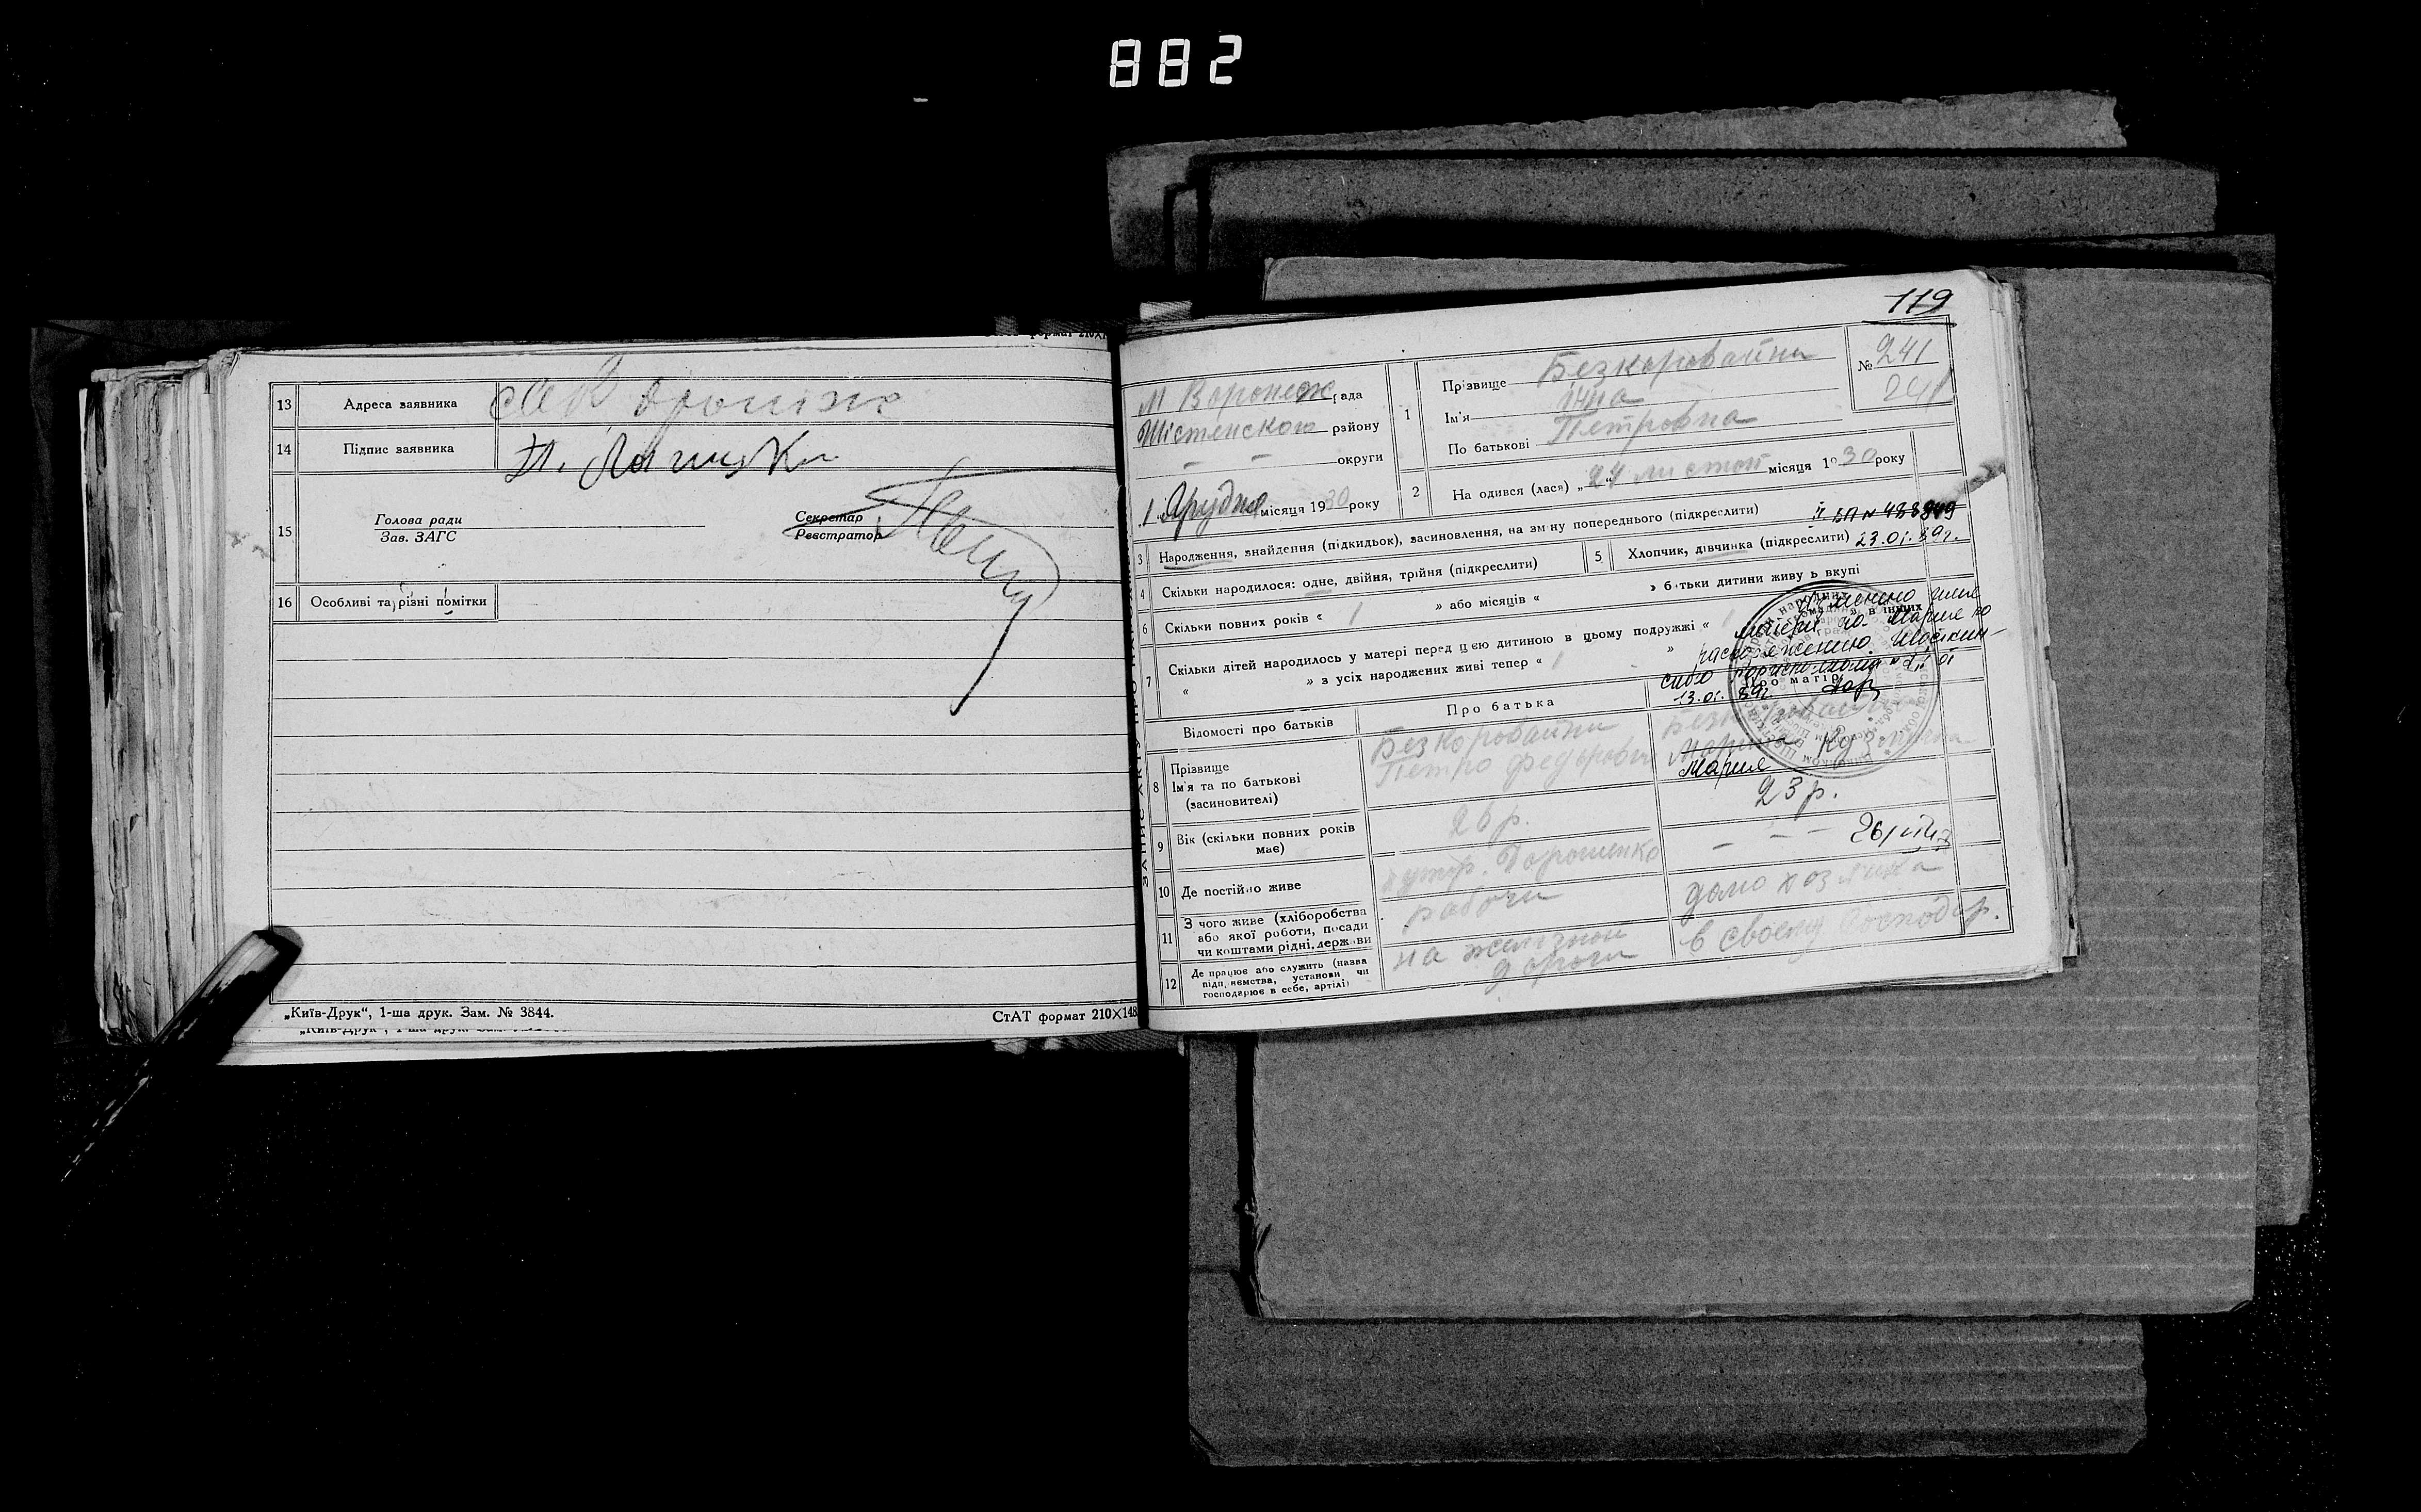 882
13 Адреса заявника
14 Підпис заявника
15 Голова ради
Зав. ЗАГС
Секретар
Реєстратор
16 Особливі та різні помітки
„Київ-Друк“, 1-ша друк. Зам. № 3844.
СтАТ формат 210×148
119
м Воронеж рада
району
округи
1 Грудня місяця 1930 року
1 Прізвище Безкоровайни
Ім'я Інна
По батькові Петровна
№ 241
241
2 На одився (лася) „24“ листоп місяця 1930 року
3 Народження, знайдення (підкидьок), засиновлення, на зміну попереднього (підкреслити)
23.01.89г.
4 Скільки народилося: одне, двійня, трійня (підкреслити)
5 Хлопчик, дівчинка (підкреслити)
6 Скільки повних років « 1 » або місяців « » батьки дитини живу ь вкупі
7 Скільки дітей народилось у матері перед цією дитиною в цьому подружжі «
» в інших
« » з усіх народжених живі тепер « 1
матери на Мария по
распоряжению Шосткин-
ского горисполкома
13.01.89г.
Відомості про батьків
Про батька
Про матір
8 Прізвище
Ім'я та по батькові
(засиновителі)
Безкоровайни
Петро Федорови
Мария
9 Вік (скільки повних років має)
26 р.
23 р.
10 Де постійно живе
хутор. Дорошенко
— — —
11 З чого живе (хліборобства або якої роботи, посади чи коштами рідні, держави
рабочи
домохозяйка
12 Де працює або служить (назва підприємства, установи чи господарює в себе, артілі)
на желізной
дороги
в своему господар.